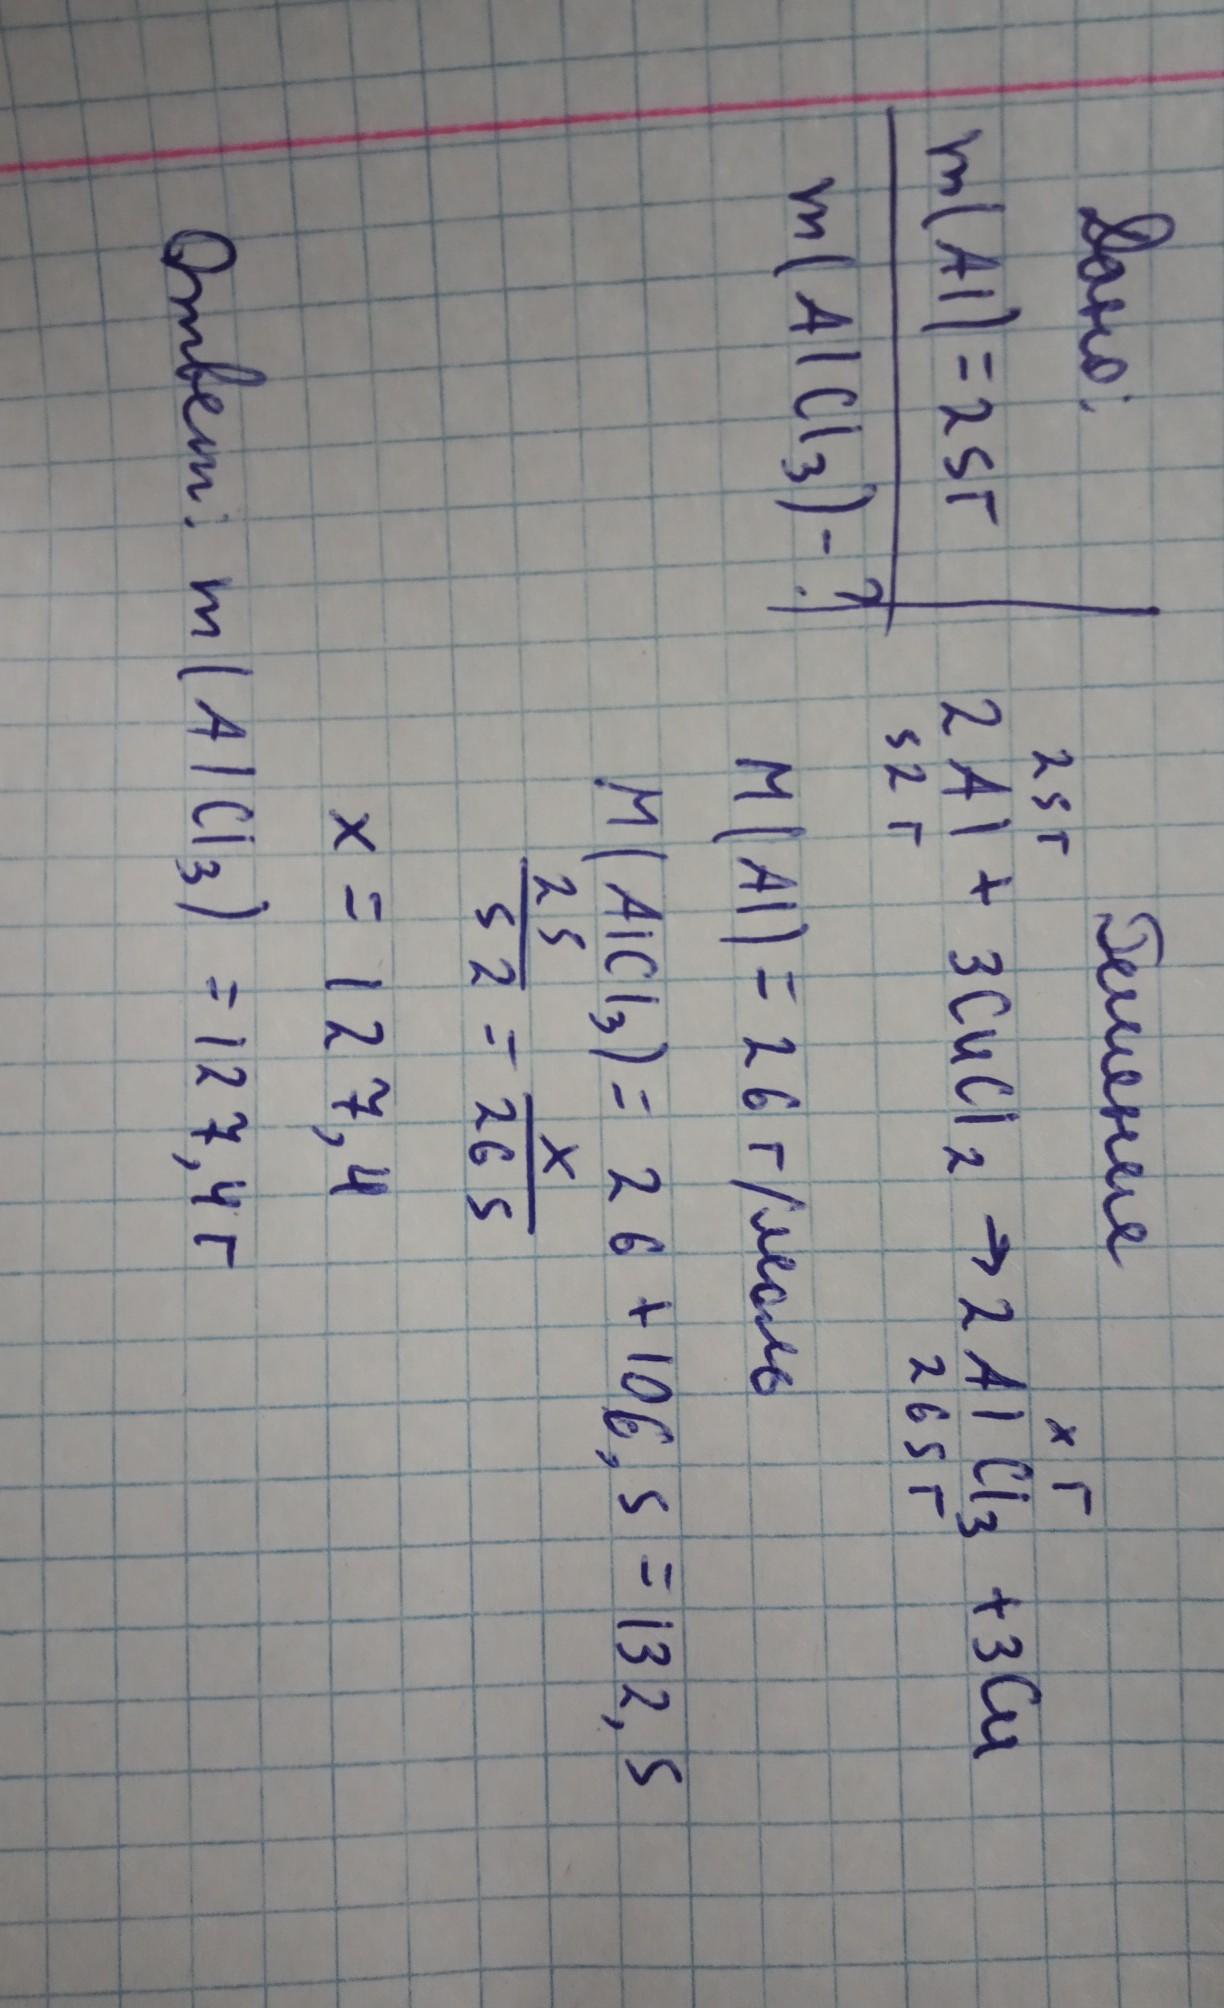 Дано:
m(Al)=25г
m(AlCl3)-?
Решение
25г x г
2Al + 3CuCl2 → 2AlCl3 + 3Cu
52г 265г
M(Al)=26г/моль
M(AlCl3)= 26+106,5=132,5
25/52 = x/265
x=127,4
Ответ: m(AlCl3)=127,4г